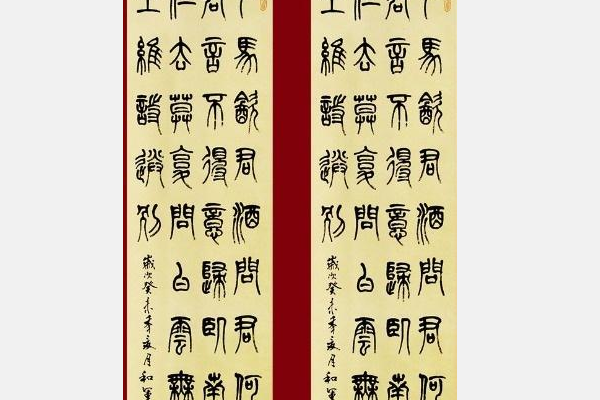 下馬飲君酒問君何
君言不得意歸臥南
但去莫復問白雲無
王維詩送別
歲次癸未季夏月和軍
下馬飲君酒問君何
君言不得意歸臥南
但去莫復問白雲無
王維詩送別
歲次癸未季夏月和軍